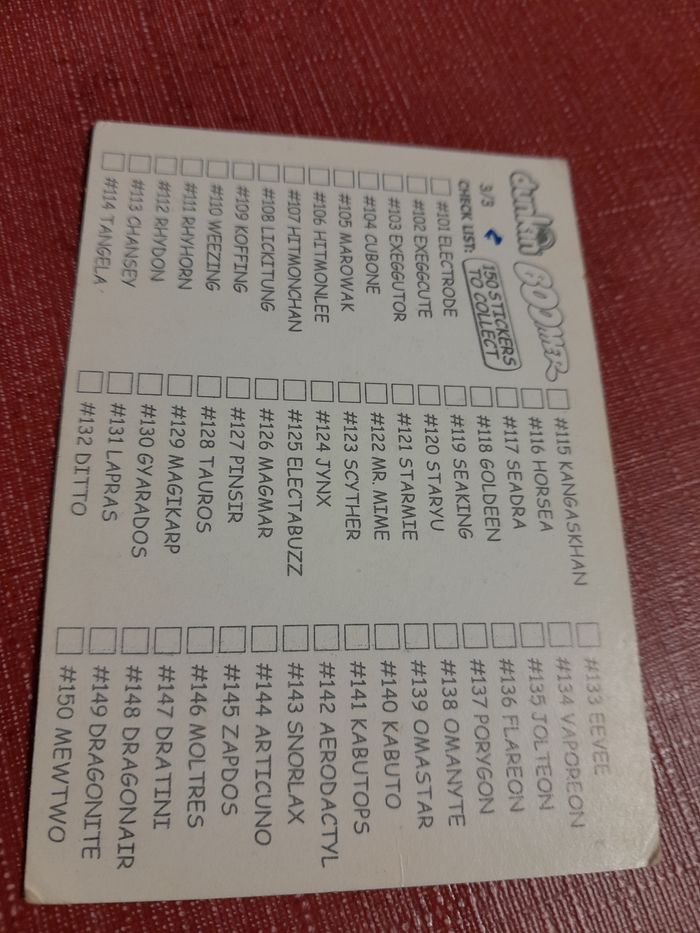 dunkin BOOMER
3/3
150 STICKERS
TO COLLECT
CHECK LIST:
#101 ELECTRODE
#102 EXEGGCUTE
#103 EXEGGUTOR
#104 CUBONE
#105 MAROWAK
#106 HITMONLEE
#107 HITMONCHAN
#108 LICKITUNG
#109 KOFFING
#110 WEEZING
#111 RHYHORN
#112 RHYDON
#113 CHANSEY
#114 TANGELA
#115 KANGASKHAN
#116 HORSEA
#117 SEADRA
#118 GOLDEEN
#119 SEAKING
#120 STARYU
#121 STARMIE
#122 MR. MIME
#123 SCYTHER
#124 JYNX
#125 ELECTABUZZ
#126 MAGMAR
#127 PINSIR
#128 TAUROS
#129 MAGIKARP
#130 GYARADOS
#131 LAPRAS
#132 DITTO
#133 EEVEE
#134 VAPOREON
#135 JOLTEON
#136 FLAREON
#137 PORYGON
#138 OMANYTE
#139 OMASTAR
#140 KABUTO
#141 KABUTOPS
#142 AERODACTYL
#143 SNORLAX
#144 ARTICUNO
#145 ZAPDOS
#146 MOLTRES
#147 DRATINI
#148 DRAGONAIR
#149 DRAGONITE
#150 MEWTWO